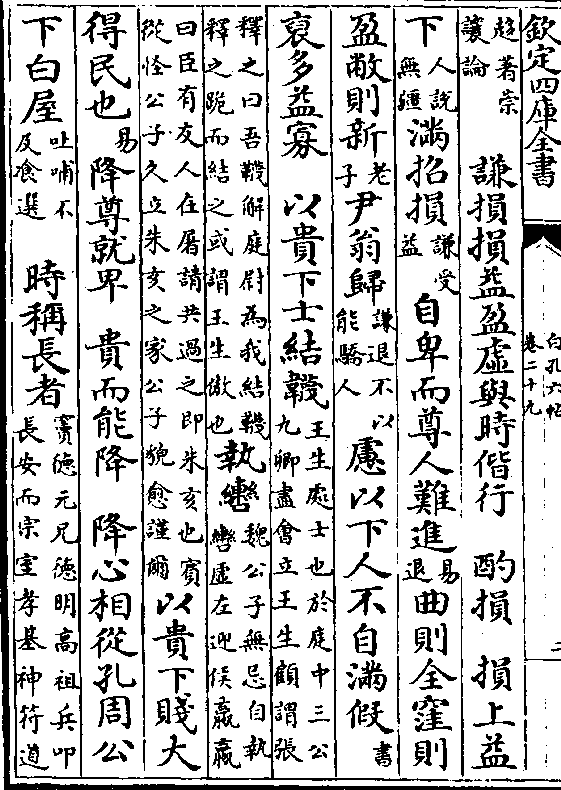 欽定四庫全書
白孔六帖
卷二十九
二
趍著崇
讓論
謙損損益盈虛與時偕行 酌損 損上益
下人説
無疆
滿招損謙受
益
自卑而尊人難進易
退
曲則全窪則
盈敝則新老
子
尹翁歸謙退不以
能驕人
慮以下人不自滿假書
裒多益寡 以貴下士結韈王生處士也於庭中三公
九卿盡會立王生顧謂張
釋之曰吾韈解庭尉為我結韈
釋之跪而結之或謂王生傲也
執轡魏公子無忌自執
轡虛左迎侯嬴嬴
曰臣有友人在屠請共過之即朱亥也賓
從怪公子久立朱亥之家公子貌愈謹爾
以貴下賤大
得民也易
降尊就卑 貴而能降 降心相從孔周公
下白屋吐哺不
及飡選
時稱長者竇德元兄德明高祖兵叩
長安而宗室孝基神符道